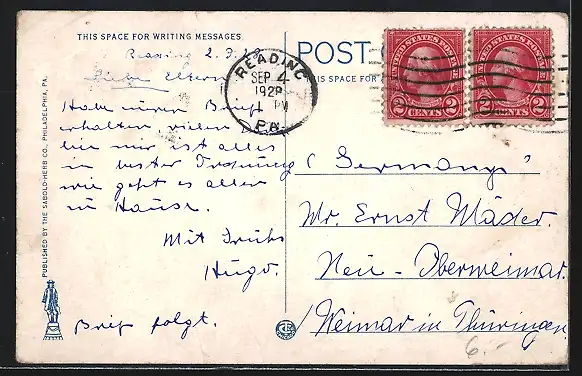 THIS SPACE FOR WRITING MESSAGES
Reading 2.9.28
Liebe Eltern
Habe euren Brief
erhalten vielen
bei mir ist alles
in bester Ordnung
wie geht es allen
zu Hause.
Mit Gruß
Hugo.
Brief folgt.
PUBLISHED BY THE SABOLD-HERB CO., PHILADELPHIA, PA.
POST
THIS SPACE FOR
READING
SEP 4
1928
1 PM
PA.
UNITED STATES POSTAGE
2 CENTS 2
UNITED STATES POSTAGE
2 CENTS 2
(Germany)
Mr. Ernst Mäder.
Neu-Oberweimar.
Weimar in Thüringen
6.-